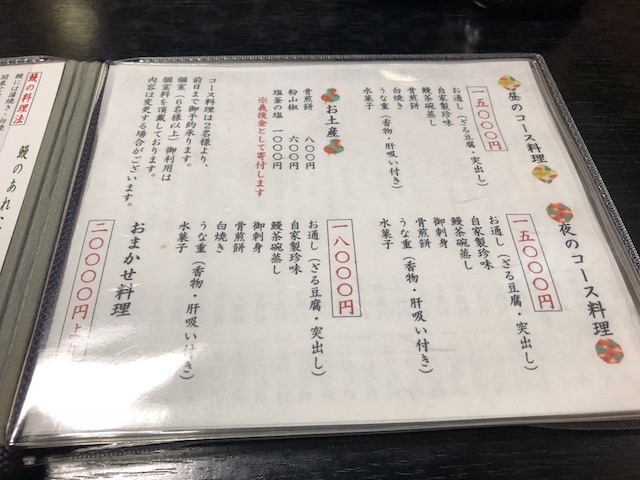 昼のコース料理
一五〇〇〇円
お通し(ざる豆腐・突出し)
自家製珍味
鰻茶碗蒸し
骨煎餅
白焼き
うな重(香物・肝吸い付き)
水菓子
お土産
骨煎餅 八〇〇円
粉山椒 六〇〇円
塩釜の塩 一〇〇〇円
※義援金として寄付します
コース料理は2名様より、
前日まで御予約承ります。
個室(6名様以上)御利用は
個室料を頂戴しております。
内容は変更する場合がございます。
夜のコース料理
一五〇〇〇円
お通し(ざる豆腐・突出し)
自家製珍味
鰻茶碗蒸し
御刺身
骨煎餅
うな重(香物・肝吸い付き)
水菓子
一八〇〇〇円
お通し(ざる豆腐・突出し)
自家製珍味
鰻茶碗蒸し
御刺身
骨煎餅
白焼き
うな重(香物・肝吸い付き)
水菓子
おまかせ料理
二〇〇〇〇円より
鰻のあれ
鰻の料理法
鰻には蒲焼き・白焼
関東